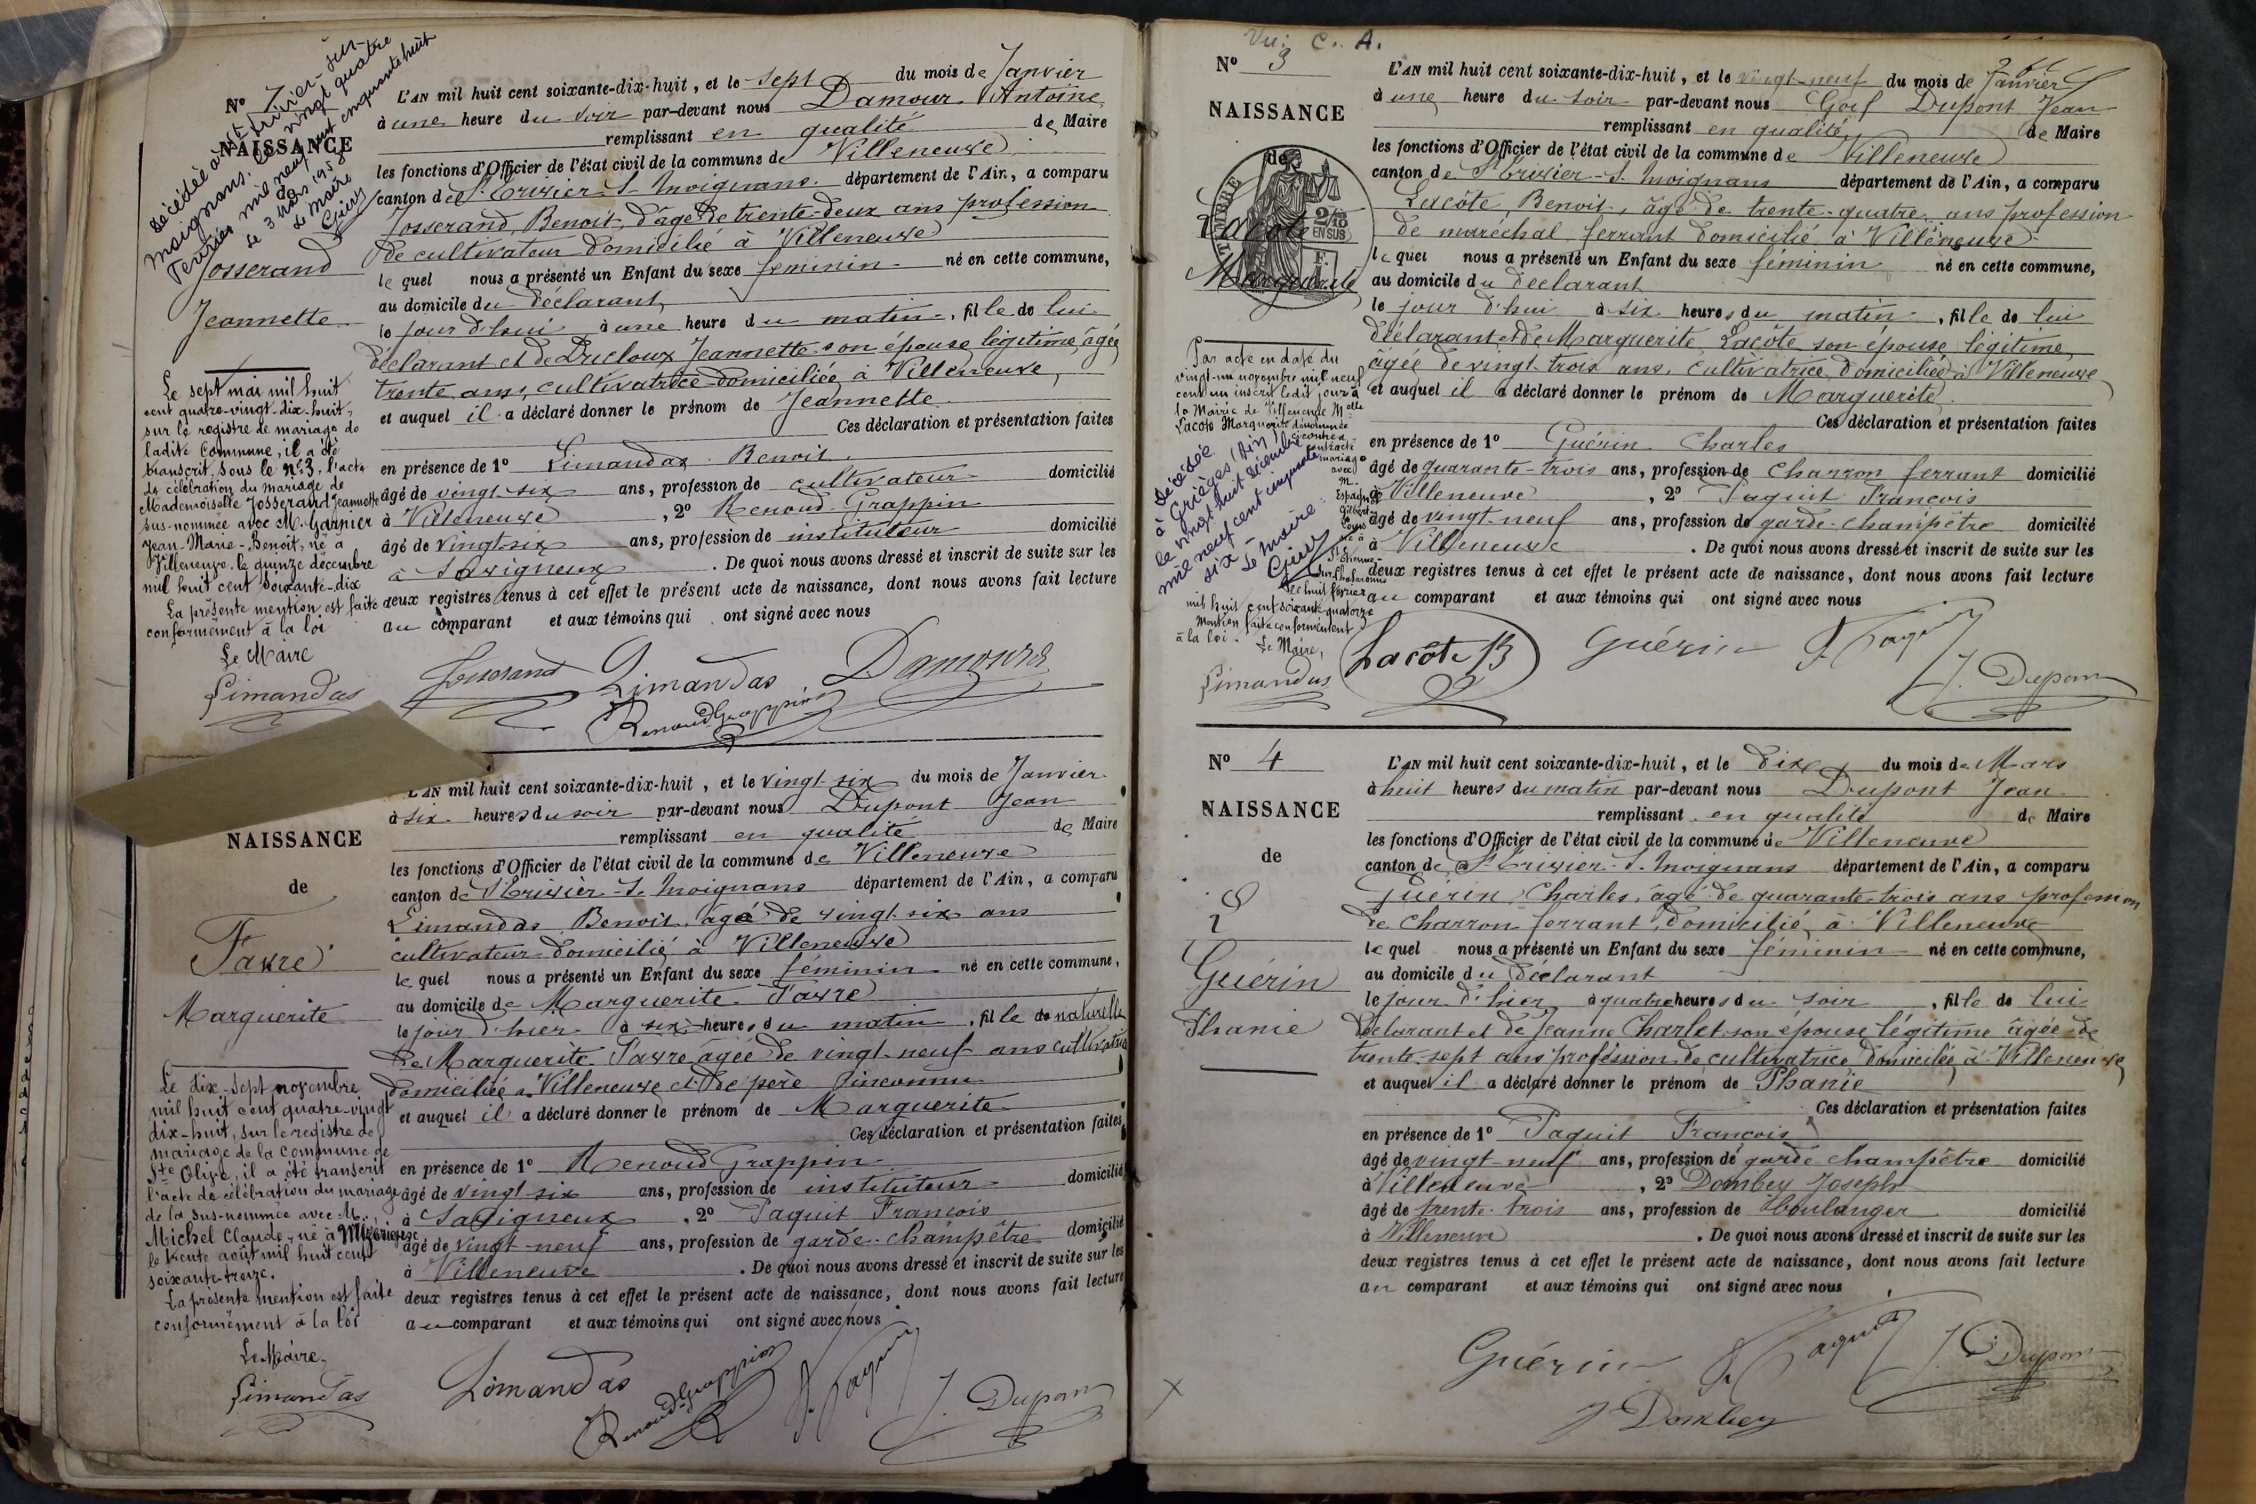 Nº 1
NAISSANCE
Décédée à St Trivier-sur-
Moignans. Le vingt quatre
Février mil neuf cent cinquante huit
Le 3 Mars 1958
Le Maire
Josserand
Jeannette
Le sept mai mil huit
cent quatre-vingt-dix-huit,
sur le registre de mariage de
ladite Commune, il a été
transcrit, sous le nº 3, l'acte
de célébration du mariage de
Mademoiselle Josserand Jeannette
sus-nommée avec M. Garnier
Jean-Marie-Benoît, né à
Villeneuve, le quinze décembre
mil huit cent soixante-dix
La présente mention est faite
conformément à la loi
Le Maire
Limandas
L'AN mil huit cent soixante-dix-huit, et le sept du mois de Janvier
à une heure du soir par-devant nous Damour Antoine
remplissant en qualité de Maire
les fonctions d'Officier de l'état civil de la commune de Villeneuve
canton de St Trivier-S-Moignans. département de l'Ain, a comparu
Josserand, Benoit, d'age de trente-deux ans profession
de cultivateur domicilié à Villeneuve
le quel nous a présenté un Enfant du sexe féminin né en cette commune,
au domicile du déclarant
le jour d'hui à une heure du matin, fille de lui
déclarant et de Ducloux Jeannette son épouse légitime, âgée
trente ans, cultivatrice domiciliée à Villeneuve,
et auquel il a déclaré donner le prénom de Jeannette
Ces déclaration et présentation faites
en présence de 1º Limandas Benoit
âgé de vingt-six ans, profession de cultivateur domicilié
à Villeneuve, 2º Renoud-Grappin
âgé de vingt-six ans, profession de instituteur domicilié
à Savigneux. De quoi nous avons dressé et inscrit de suite sur les
deux registres tenus à cet effet le présent acte de naissance, dont nous avons fait lecture
au comparant et aux témoins qui ont signé avec nous
Josserand Limandas Damour
Renoud Grappin
NAISSANCE
de
Favre
Marguerite
Le dix-sept novembre
mil huit cent quatre-vingt
dix-huit, sur le registre de
mariage de la commune de
Ste Olive, il a été transcrit
l'acte de célébration du mariage
de la sus-nommée avec M.
Michel Claude, né à Misérieux
le trente août mil huit cent
soixante-treize.
La présente mention est faite
conformément à la loi
Le Maire.
Limandas
L'AN mil huit cent soixante-dix-huit, et le vingt-six du mois de Janvier
à six heures du soir par-devant nous Dupont Jean
remplissant en qualité de Maire
les fonctions d'Officier de l'état civil de la commune de Villeneuve
canton de St Trivier-S-Moignans département de l'Ain, a comparu
Limandas Benoit, âgé de vingt-six ans
cultivateur domicilié à Villeneuve
le quel nous a présenté un Enfant du sexe féminin né en cette commune,
au domicile de Marguerite Favre
le jour d'hier à six heures du matin, fille de naturelle
de Marguerite Favre âgée de vingt-neuf ans cultivatrice
domiciliée à Villeneuve et de père inconnu
et auquel il a déclaré donner le prénom de Marguerite
Ces déclaration et présentation faites
en présence de 1º Renoud Grappin
âgé de vingt-six ans, profession de instituteur domicilié
à Savigneux, 2º Paquit François
âgé de vingt-neuf ans, profession de garde-champêtre domicilié
à Villeneuve. De quoi nous avons dressé et inscrit de suite sur les
deux registres tenus à cet effet le présent acte de naissance, dont nous avons fait lecture
au comparant et aux témoins qui ont signé avec nous
Limandas Renoud-Grappin F. Paquit J. Dupont
Vu: C. A.
Nº 3
NAISSANCE
de
TIMBRE
2/10
EN SUS
Lacôte
Marguerite
Par acte en date du
vingt-un novembre mil neuf
cent un inscrit ledit jour à
la Mairie de Villeneuve Melle
Lacôte Marguerite dénommée
ci contre a
contracté
mariage
avec
M.
Espagne
Gilbert
Louis
né à
St
Etienne
sur Chalaronne
le huit février
mil huit cent soixante-quatorze
Mention faite conformément
à la loi. Le Maire,
Limandas
Décédée
à Grièges (Ain)
le vingt huit décembre
mil neuf cent cinquante
six
Le Maire:
L'AN mil huit cent soixante-dix-huit, et le vingt-neuf du mois de Janvier
à une heure du soir par-devant nous Dupont Jean
remplissant en qualité de Maire
les fonctions d'Officier de l'état civil de la commune de Villeneuve
canton de St Trivier-S-Moignans département de l'Ain, a comparu
Lacôte Benoit, âgé de trente-quatre ans profession
de maréchal ferrant domicilié à Villeneuve
le quel nous a présenté un Enfant du sexe féminin né en cette commune,
au domicile du déclarant
le jour d'hui à six heures du matin, fille de lui
déclarant et de Marguerite Lacôte son épouse légitime,
âgée de vingt-trois ans, cultivatrice, domiciliée à Villeneuve
et auquel il a déclaré donner le prénom de Marguerite
Ces déclaration et présentation faites
en présence de 1º Guérin Charles
âgé de quarante-trois ans, profession de charron ferrant domicilié
à Villeneuve, 2º Paquit François
âgé de vingt-neuf ans, profession de garde-champêtre domicilié
à Villeneuve. De quoi nous avons dressé et inscrit de suite sur les
deux registres tenus à cet effet le présent acte de naissance, dont nous avons fait lecture
au comparant et aux témoins qui ont signé avec nous
Lacôte B Guérin F. Paquit
J. Dupont
Nº 4
NAISSANCE
de
Guérin
Phanie
L'AN mil huit cent soixante-dix-huit, et le dix du mois de Mars
à huit heures du matin par-devant nous Dupont Jean
remplissant en qualité de Maire
les fonctions d'Officier de l'état civil de la commune de Villeneuve
canton de St Trivier-S-Moignans département de l'Ain, a comparu
Guérin Charles, âgé de quarante-trois ans profession
de charron ferrant, domicilié à Villeneuve
le quel nous a présenté un Enfant du sexe féminin né en cette commune,
au domicile du déclarant
le jour d'hier à quatre heures du soir, fille de lui
déclarant et de Jeanne Charlet son épouse légitime âgée de
trente-sept ans profession de cultivatrice domiciliée à Villeneuve
et auquel il a déclaré donner le prénom de Phanie
Ces déclaration et présentation faites
en présence de 1º Paquit François
âgé de vingt-neuf ans, profession de garde champêtre domicilié
à Villeneuve, 2º Dombey Joseph
âgé de trente-trois ans, profession de boulanger domicilié
à Villeneuve. De quoi nous avons dressé et inscrit de suite sur les
deux registres tenus à cet effet le présent acte de naissance, dont nous avons fait lecture
au comparant et aux témoins qui ont signé avec nous
Guérin F. Paquit J. Dupont
J Dombey